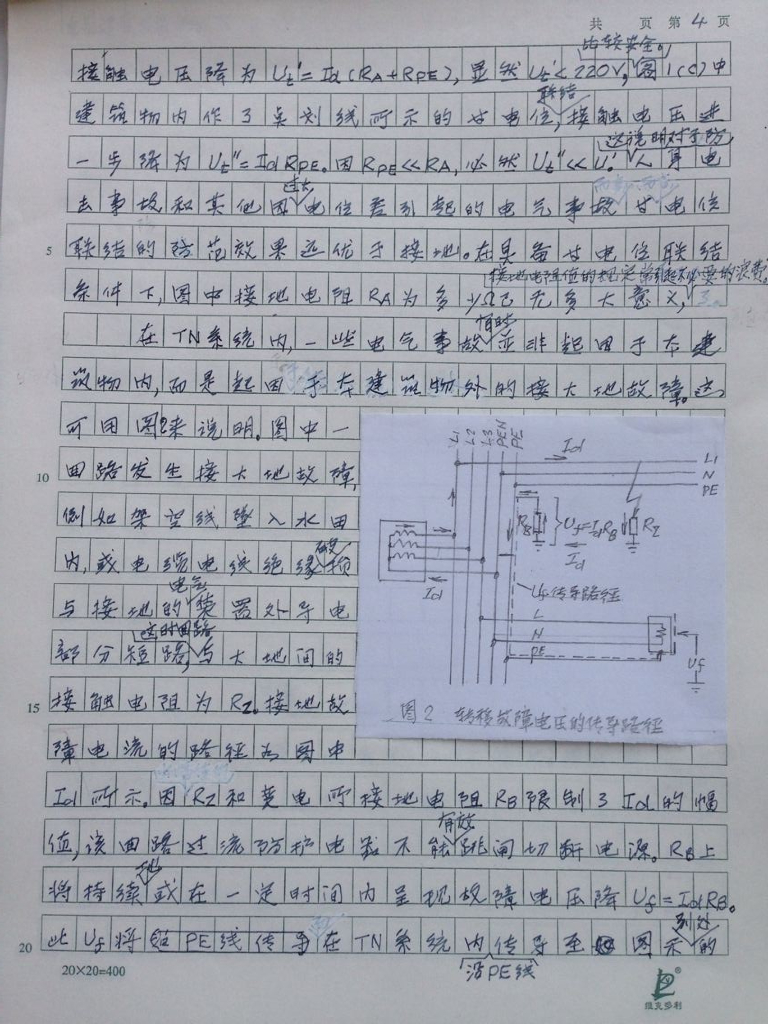 共 页 第 4 页
比较安全。
接触电压降为 Ut'=Id(RA+RPE), 显然 Ut'<220V, 图1(c)中
联结
建筑物内作了虚划线所示的等电位, 接触电压进
这说明对于防
一步降为 Ut''=IdRPE。因RPE<<RA, 必然 Ut''<<Ut', 人身电
过大
击事故和其他因电位差引起的电气事故等电位
5 联结的防范效果远优于接地。在具备等电位联结
接地电阻值的规定常引起不必要的浪费。
条件下, 图中接地电阻RA为多少Ω已无多大意义,
有时
在TN系统内, 一些电气事故并非起因于本建
筑物内, 而是起因于本建筑物外的接大地故障。这
可用图2来说明。图中一
10 回路发生接大地故障,
例如架空线坠入水田
破
内, 或电缆电线绝缘损
电气
与接地的装置外导电
这时回路
部分短路, 与大地间的
15 接触电阻为RZ。接地故
障电流的路径为图中
Id所示。因RZ和变电所接地电阻RB限制了Id的幅
有效
值, 该回路过流防护电器不能跳闸切断电源。RB上
地
将持续或在一定时间内呈现故障电压降 Uf=IdRB。
到处
20 此Uf将沿PE线传导在TN系统内传导至图示的
沿PE线
L1
L2
L3
PEN
PE
Id
L1
N
PE
RB
Uf=IdRB
RZ
Id
Id
Uf传导路径
L
N
PE
Uf
图2 转移故障电压的传导路径
20×20=400
维克多利